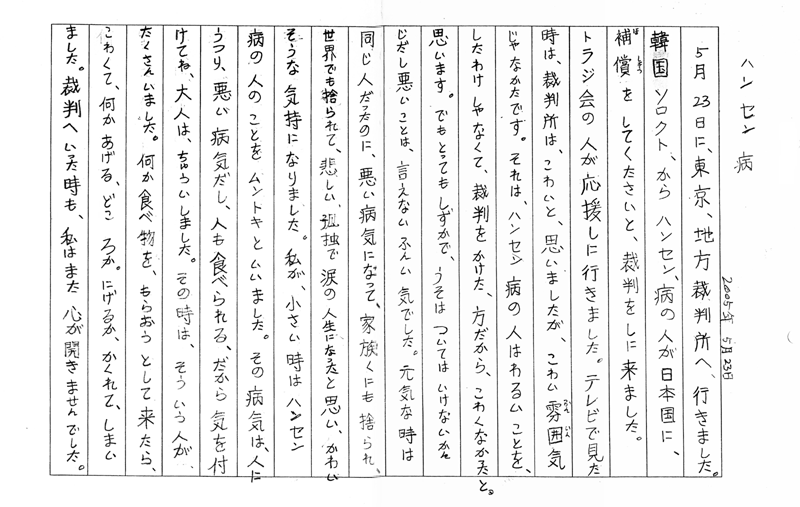 ハンセン病
2005年 5月23日
5月23日に、東京、地方裁判所へ、行きました。
韓国ソロクト、から ハンセン、病の人が日本国に、
補償をしてくださいと、裁判をしに来ました。
トラジ会の人が応援しに行きました。テレビで見た
時は、裁判所は、こわいと、思いましたが、こわい雰囲気
じゃなかたです。それは、ハンセン病の人はわるいことを、
したわけじゃなくて、裁判をかけた、方だから、こわくなかったと。
思います。でもとってもしずかで、うそはついてはいけないかん
じだし悪いことは、言えないふんい気でした。元気な時は
同じ人だったのに、悪い病気になって、家族くにも捨られ、
世界でも捨られて、悲しい、孤独で涙の人生になったと思い、かわい
そうな気持になりました。私が、小さい時はハンセン
病の人のことをムントキといいました。その病気は、人に
うつり、悪い病気だし、人も食べられる、だから気を付
けてね、大人は、ちゅういしました。その時は、そういう人が、
たくさんいました。何か食べ物を、もらおうとして来たら、
こわくて、何かあげる、どころか。にげるか、かくれて、しまい
ました。裁判へいった時も、私はまた心が開きませんでした。